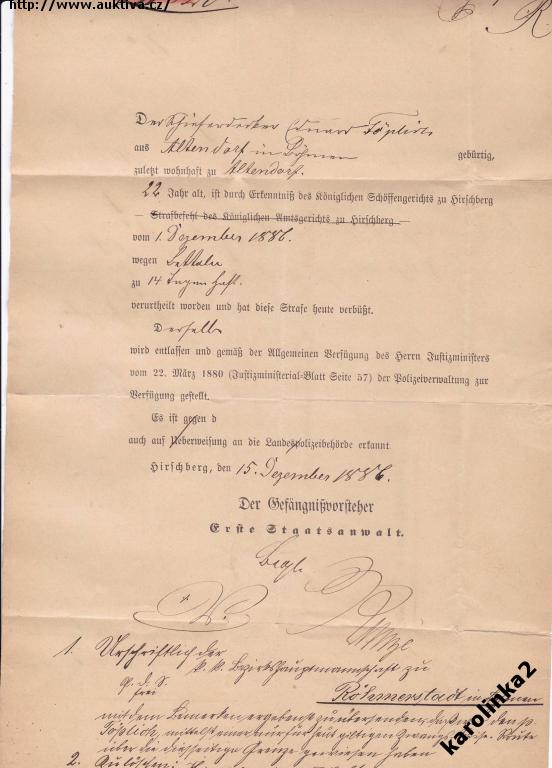 http://www.auktiva.cz/
Der Schieferdecker Eduard Töplich
aus Altendorf in Böhmen gebürtig,
zuletzt wohnhaft zu Altendorf.
22 Jahr alt, ist durch Erkenntniß des Königlichen Schöffengerichts zu Hirschberg
— Strafbefehl des Königlichen Amtsgerichts zu Hirschberg —
vom 1. Dezember 1886.
wegen Betteln
zu 14 Tagen Haft.
verurtheilt worden und hat diese Strafe heute verbüßt.
Derselbe
wird entlassen und gemäß der Allgemeinen Verfügung des Herrn Justizministers
vom 22. März 1880 (Justizministerial-Blatt Seite 57) der Polizeiverwaltung zur
Verfügung gestellt.
Es ist gegen d
auch auf Ueberweisung an die Landespolizeibehörde erkannt
Hirschberg, den 15. Dezember 1886.
Der Gefängnißvorsteher
Erste Staatsanwalt.
1. Urschriftlich der
k. k. Bezirkshauptmannschaft zu
frei
Römerstadt in
mit dem Bemerken ergebenst zu übersenden, daß
Töplich, mittelst einer nur für
über die diesseitige Grenze gewiesen haben
2.
karolinka2